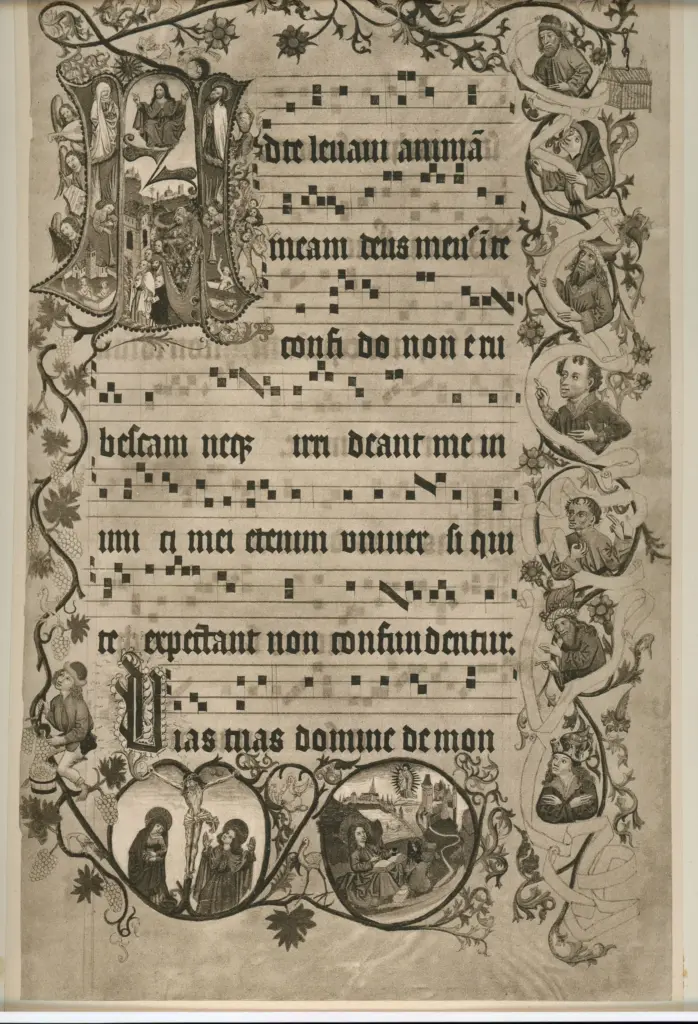 Ad te levavi animā
meam deus meuˢ ī te
confi do non eru
bescam neqꝫ irri deant me in
imi ci mei etenim univer si qui
te expectant non confundentur.
Vias tuas domine demon